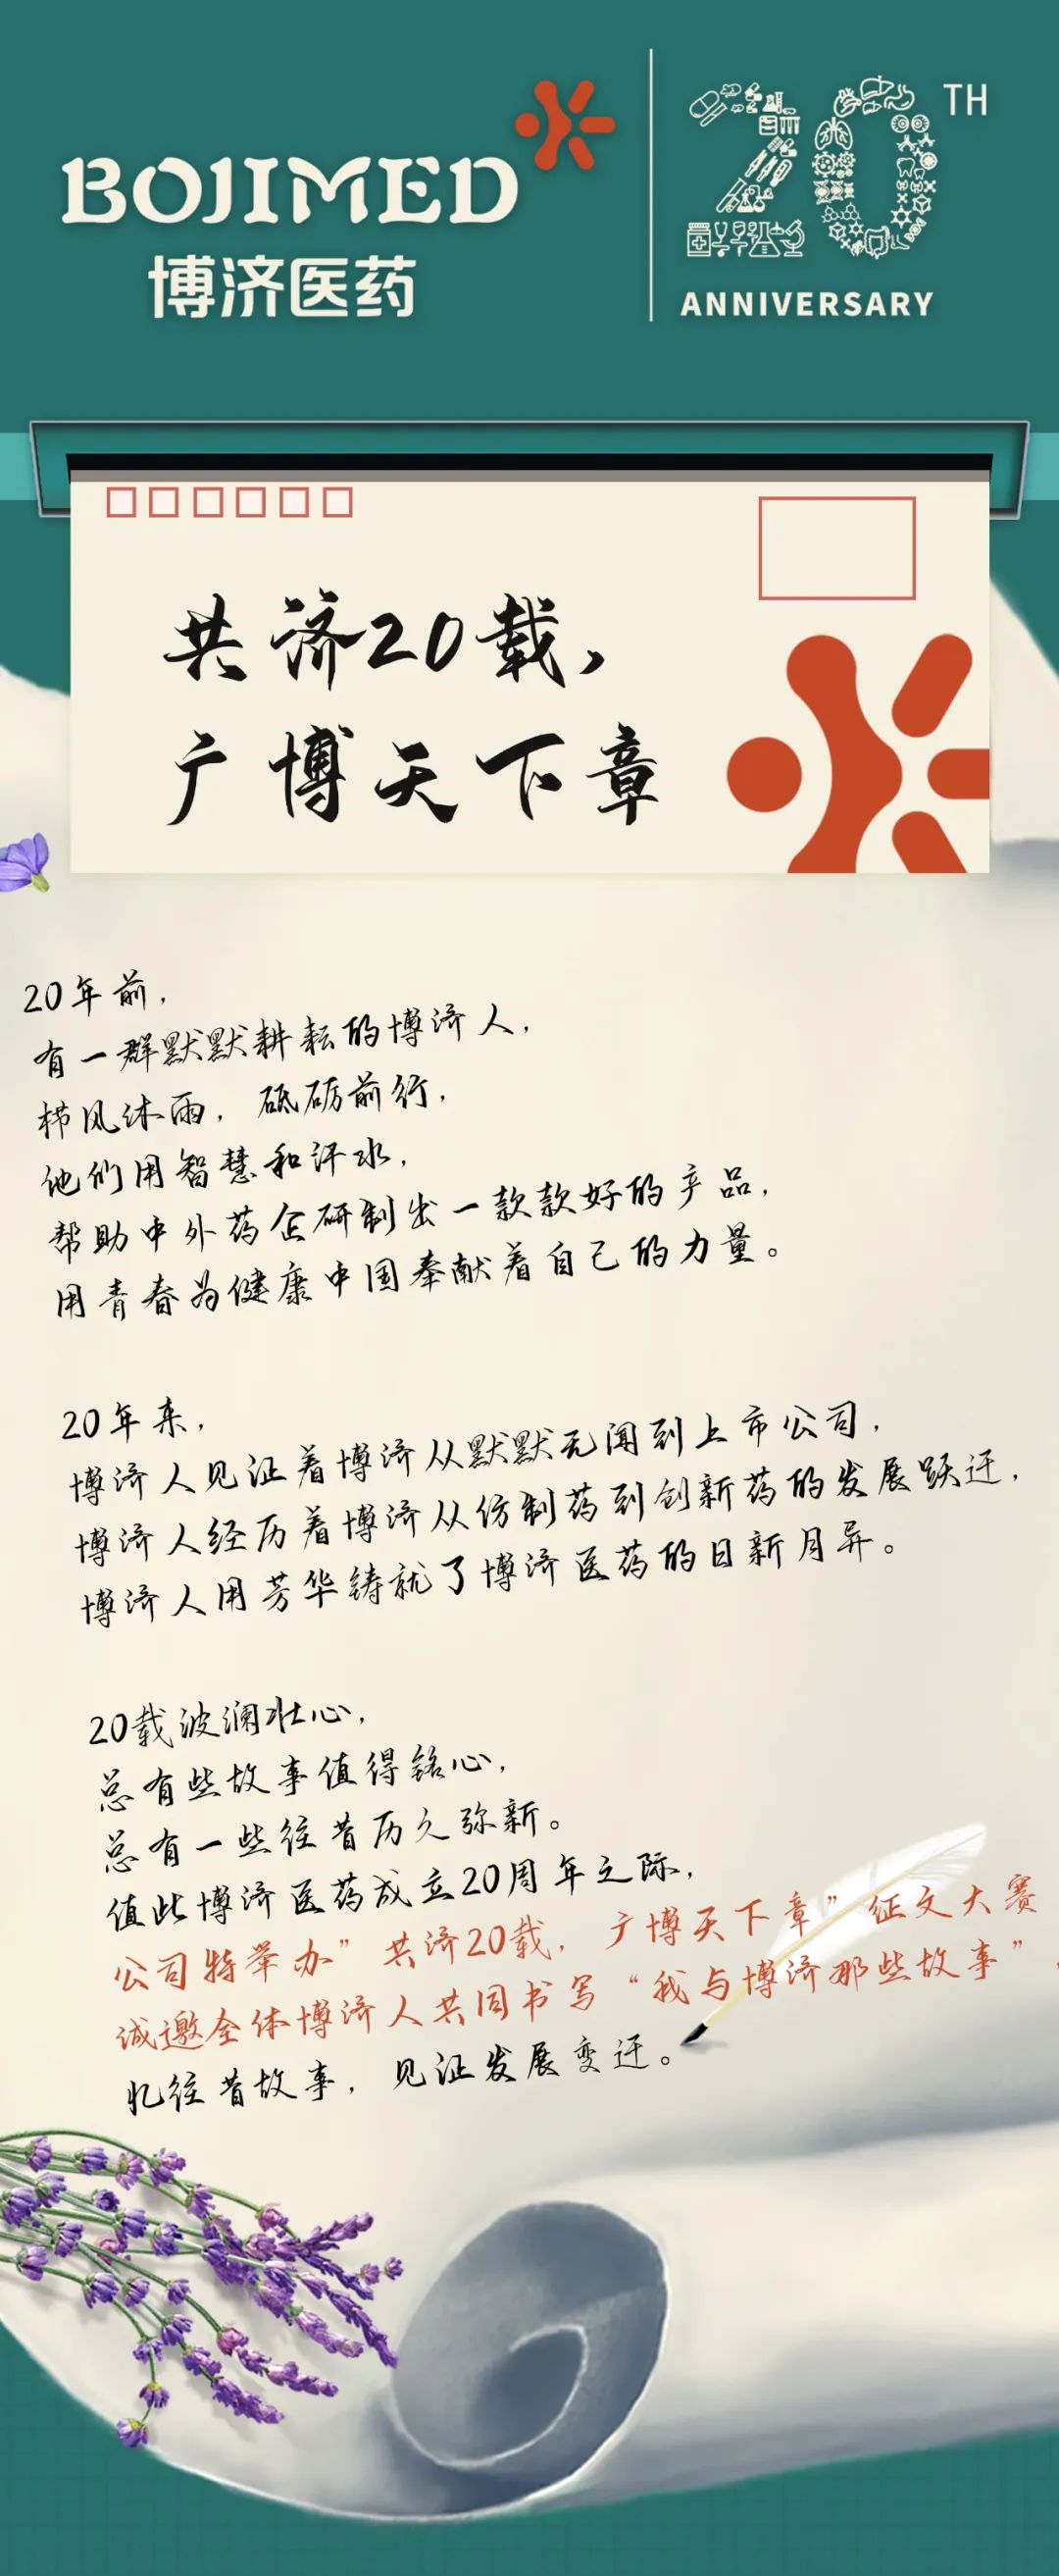 BOJIMED
博济医药
20TH
ANNIVERSARY
共济20载，
广博天下章
20年前，
有一群默默耕耘的博济人，
栉风沐雨，砥砺前行，
他们用智慧和汗水，
帮助中外药企研制出一款款好的产品，
用青春为健康中国奉献着自己的力量。
20年来，
博济人见证着博济从默默无闻到上市公司，
博济人经历着博济从仿制药到创新药的发展跃迁，
博济人用芳华铸就了博济医药的日新月异。
20载波澜壮心，
总有些故事值得铭心，
总有一些往昔历久弥新。
值此博济医药成立20周年之际，
公司特举办”共济20载，广博天下章”征文大赛
诚邀全体博济人共同书写“我与博济那些故事”，
忆往昔故事，见证发展变迁。